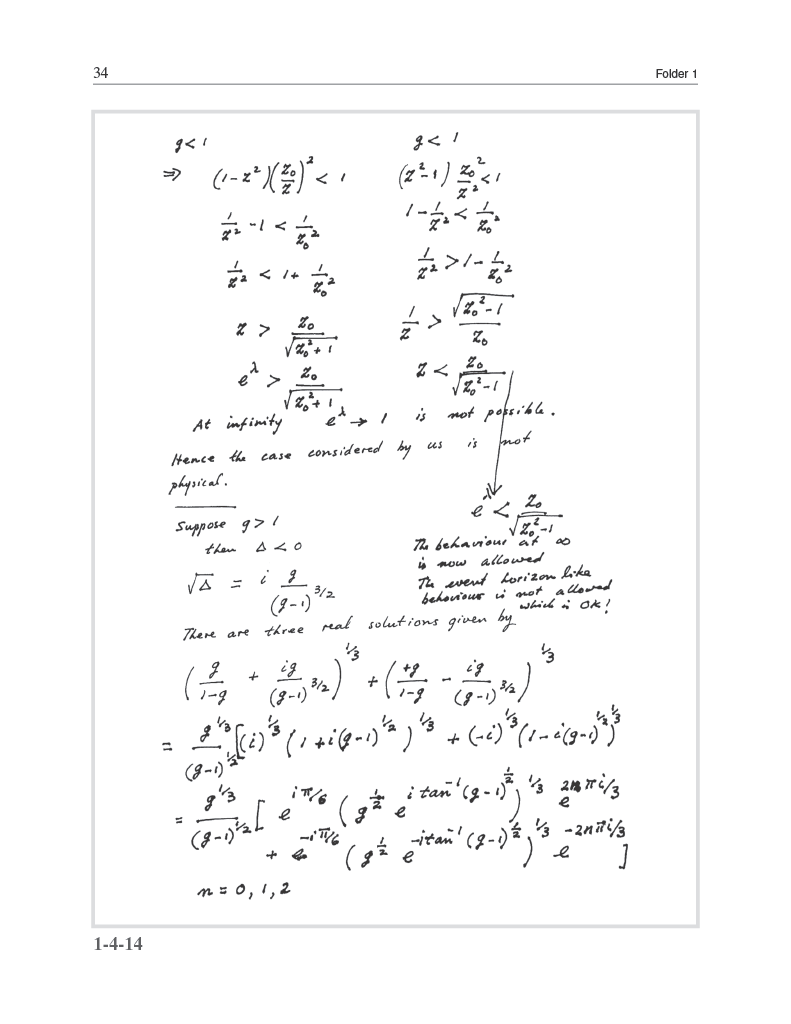 34 Folder 1
g < 1
⇒ (1-z²)(z₀/z)² < 1
1/z² - 1 < 1/z₀²
1/z² < 1 + 1/z₀²
z > z₀/√(z₀²+1)
e^λ > z₀/√(z₀²+1)
g < 1
(z²-1) z₀²/z² < 1
1 - 1/z² < 1/z₀²
1/z² > 1 - 1/z₀²
1/z > √(z₀²-1)/z₀
z < z₀/√(z₀²-1)
At infinity e^λ → 1 is not possible.
Hence the case considered by us is not
physical.
e^λ < z₀/√(z₀²-1)
The behaviour at ∞
is now allowed
The event horizon like
behaviour is not allowed
which is OK!
Suppose g > 1
then Δ < 0
√Δ = i g/(g-1)^3/2
There are three real solutions given by
(g/(1-g) + ig/(g-1)^3/2)^1/3 + (+g/(1-g) - ig/(g-1)^3/2)^1/3
= g^1/3/(g-1)^1/2 [(i)^1/3 (1+i(g-1)^1/2)^1/3 + (-i)^1/3 (1-i(g-1)^1/2)^1/3
= g^1/3/(g-1)^1/2 [ e^iπ/6 (g^1/2 e^i tan⁻¹(g-1)^1/2)^1/3 e^2nπi/3
+ e^-iπ/6 (g^1/2 e^-i tan⁻¹(g-1)^1/2)^1/3 e^-2nπi/3 ]
n = 0, 1, 2
1-4-14